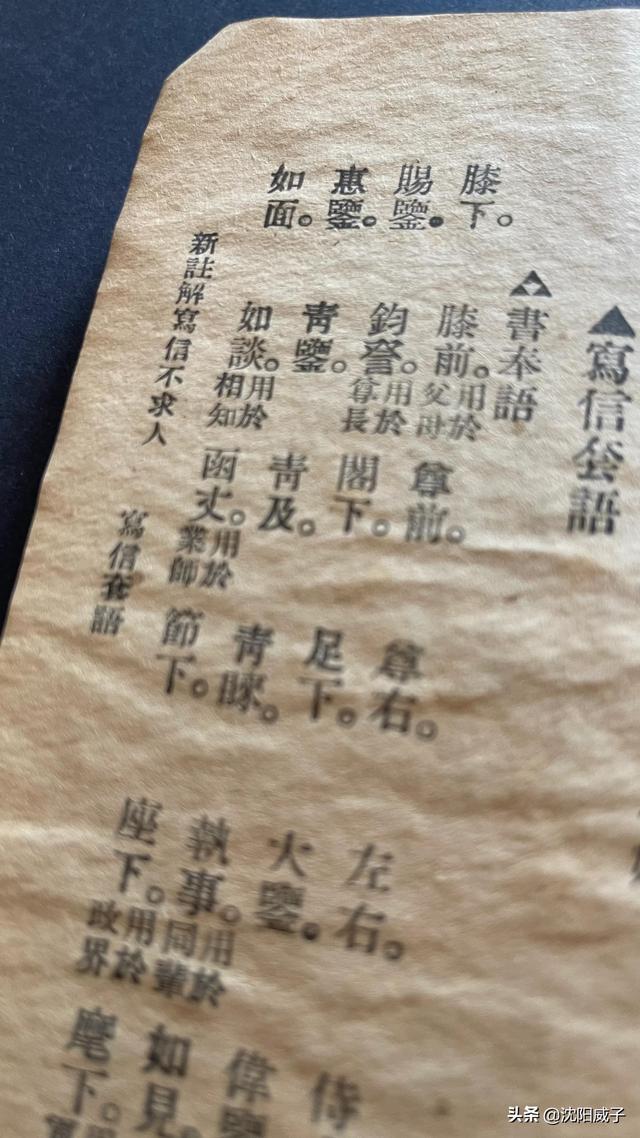 ▲寫信套語
書奉語
膝下。膝前。用於父母尊前。尊右。左右。侍
賜鑒。鈞詧。用於尊長閣下。足下。大鑒。偉鑒
惠鑒。青鑒。青及。青睞。執事。用於同輩如見。
如面。如談。用於相知函丈。用於業師節下。座下。用於政界麾下。
新註解寫信不求人 寫信套語
头条 @沈阳威子